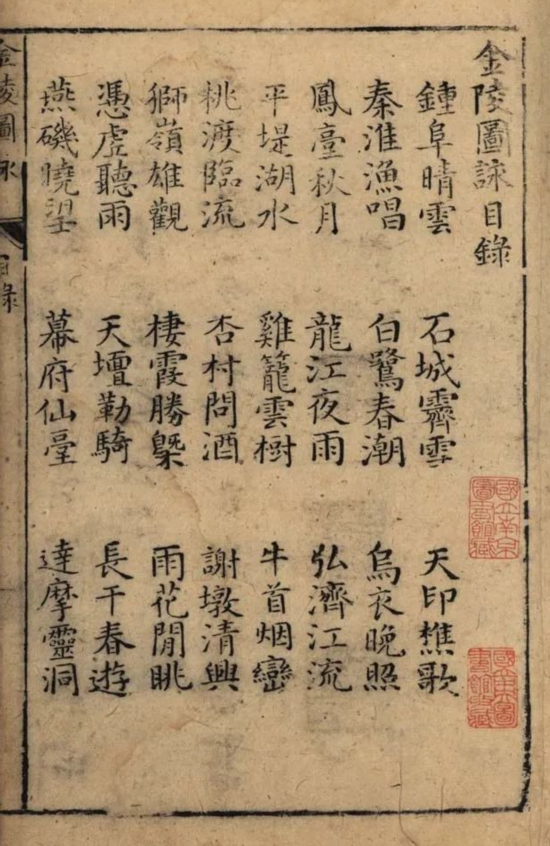 金陵圖詠目錄
鍾阜晴雲 石城霽雪 天印樵歌
秦淮漁唱 白鷺春潮 烏衣晚照
鳳臺秋月 龍江夜雨 弘濟江流
平堤湖水 雞籠雲樹 牛首烟巒
桃渡臨流 杏村問酒 謝墩清興
獅嶺雄觀 棲霞勝槩 雨花閒眺
憑虛聽雨 天壇勒騎 長干春遊
燕磯曉望 幕府仙臺 達摩靈洞
金陵圖詠 目錄